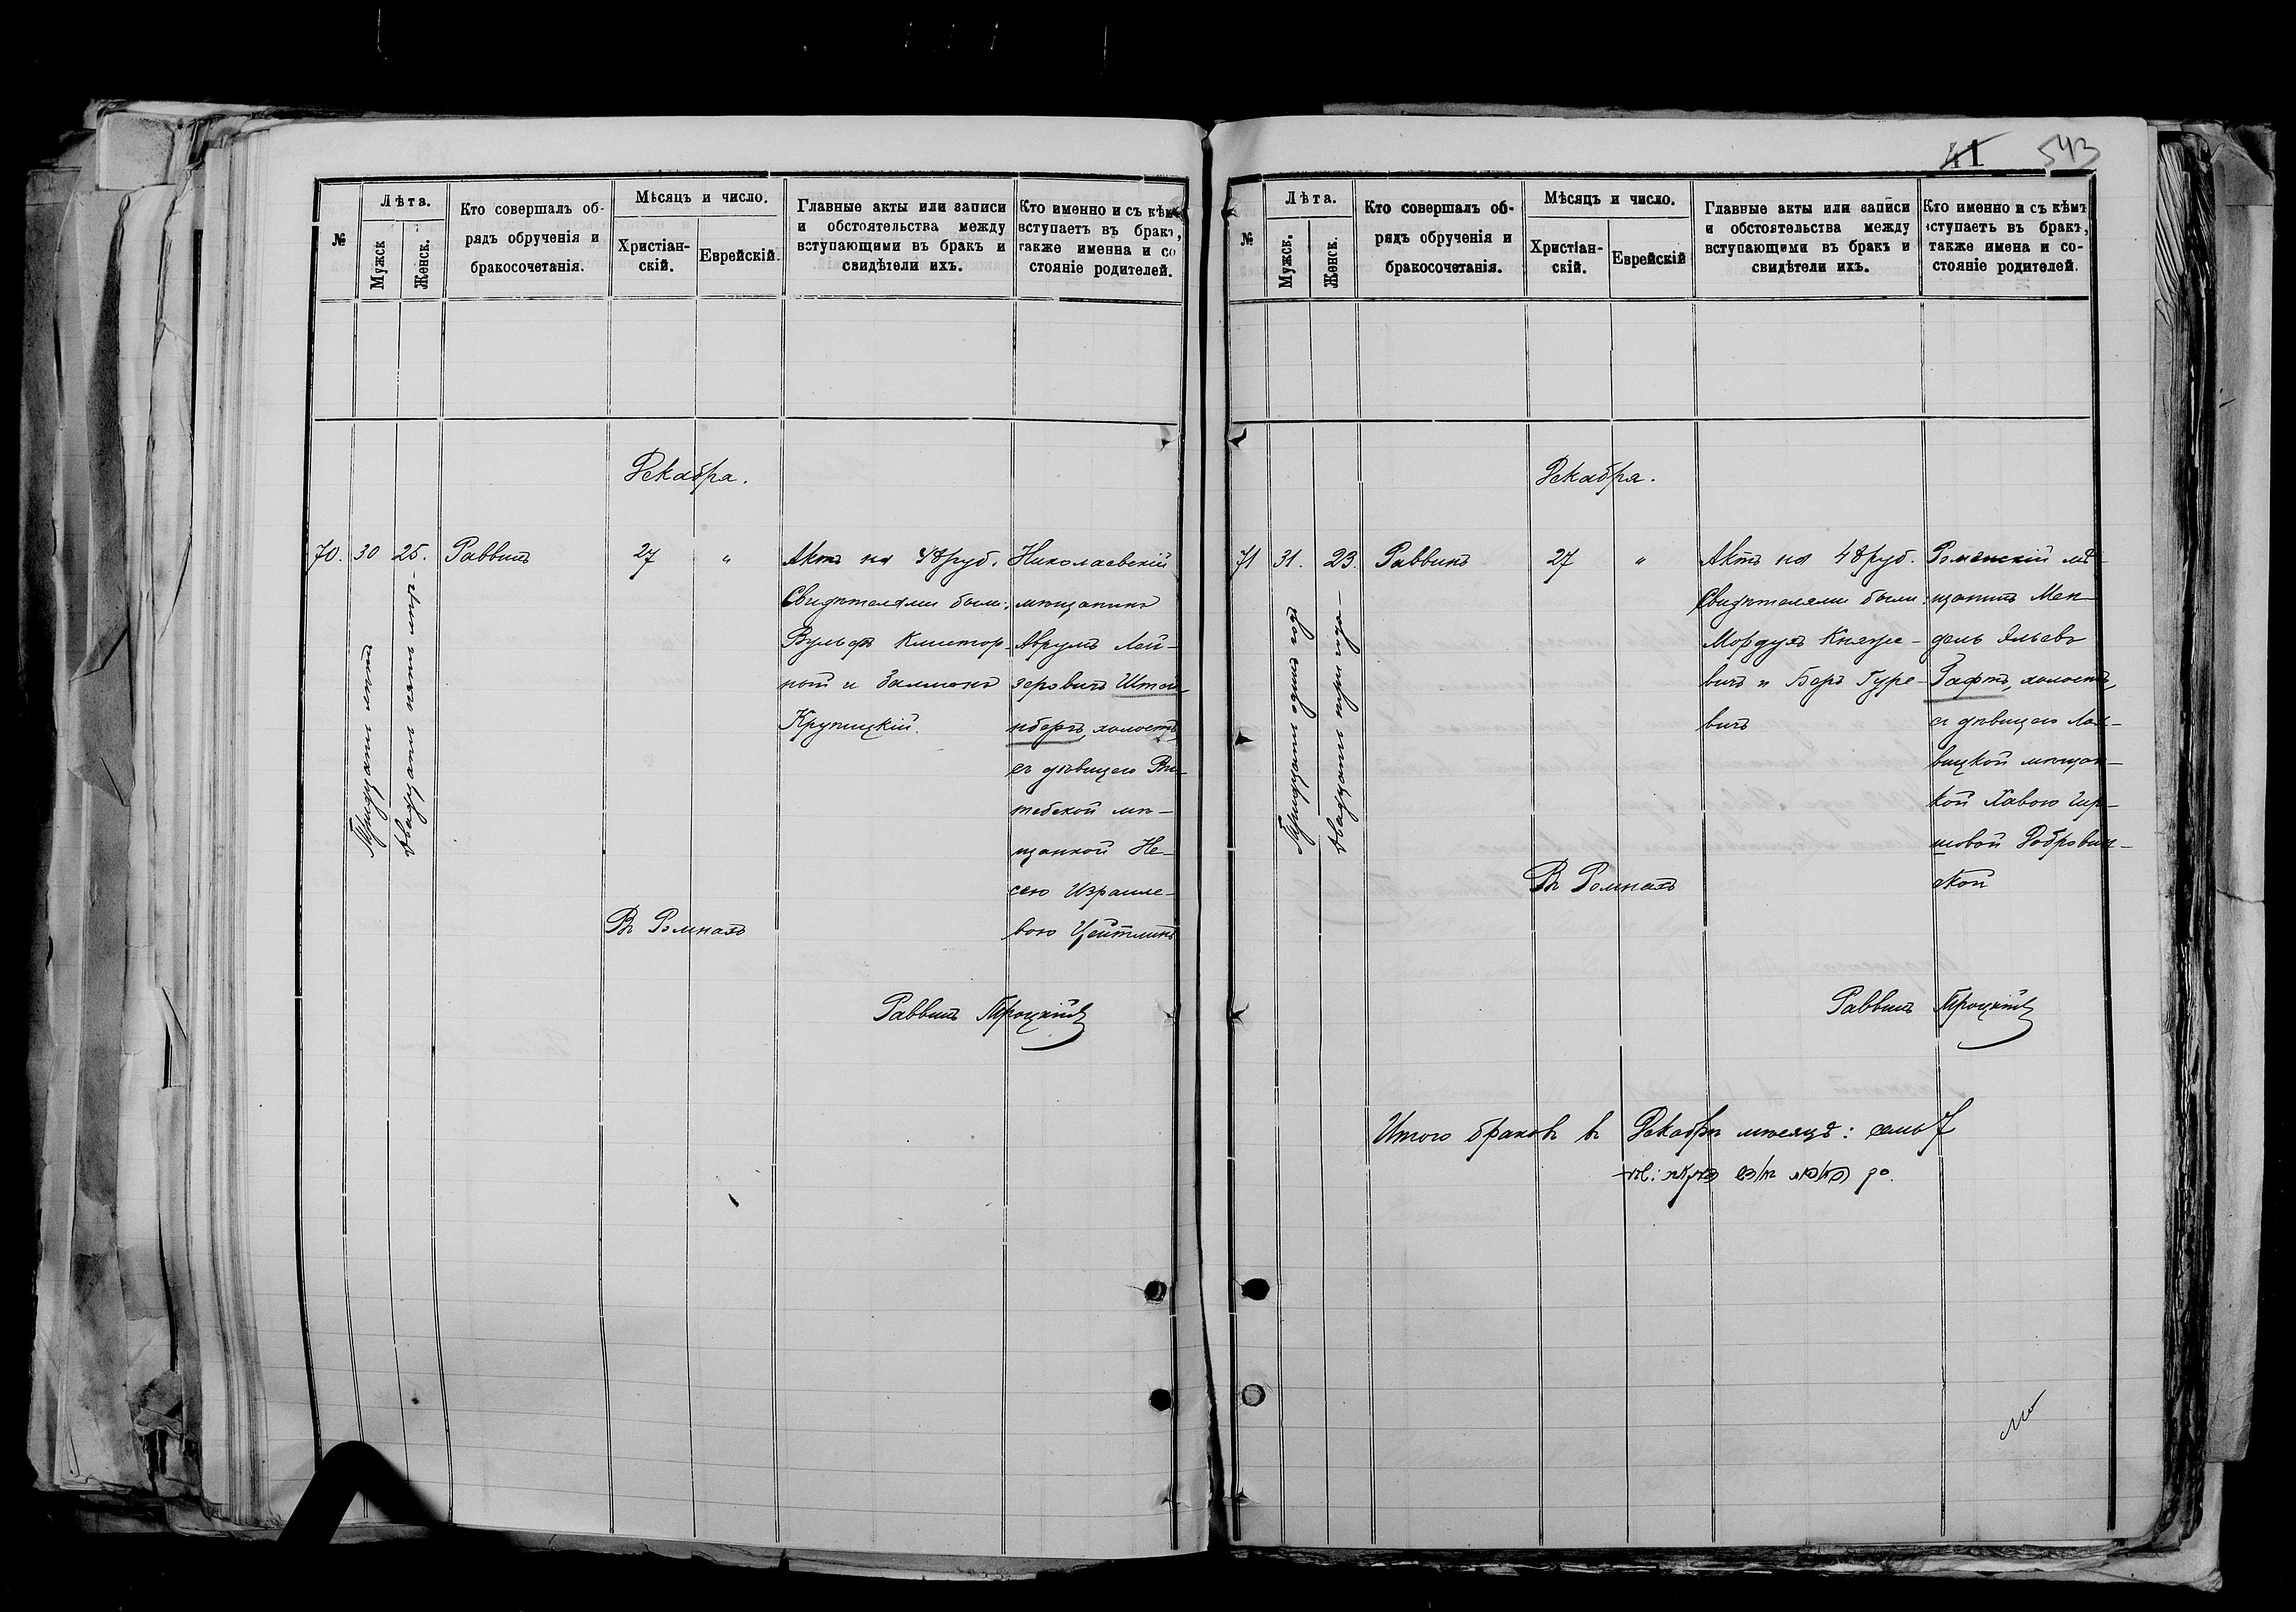 №
Лѣта.
Мужск
Женск.
Кто совершалъ об-
рядъ обрученія и
бракосочетанія.
Мѣсяцъ и число.
Христіан-
скій.
Еврейскій.
Главные акты или записи
и обстоятельства между
вступающими въ бракъ и
свидѣтели ихъ.
Кто именно и съ кѣмъ
вступаетъ въ бракъ,
также именна и со
стояніе родителей.
Декабря.
70. 30 25. Раввинъ 27 "
Тридцать лѣтъ
Двадцать пять лѣтъ
Актъ на 48 руб.
Свидѣтелями были:
Вульфъ Клигтор-
ный и Залманъ
Крупицкій.
Николаевскій
мѣщанинъ
Аврумъ Лей-
зеровичъ Штей-
нбергъ, холостъ,
съ дѣвицею Ви-
тебской мѣ-
щанкой Не-
сею Израиле-
вою Цейтлинъ
Въ Ромнахъ
Раввинъ Троцкій
41 543
№
Лѣта.
Мужск.
Женск.
Кто совершалъ об-
рядъ обрученія и
бракосочетанія.
Мѣсяцъ и число.
Христіан-
скій.
Еврейскій
Главные акты или записи
и обстоятельства между
вступающими въ бракъ и
свидѣтели ихъ.
Кто именно и съ кѣмъ
вступаетъ въ бракъ,
также имена и со-
стояніе родителей.
Декабря.
71 31. 23. Раввинъ 27 "
Тридцать одинъ годъ
Двадцать три года
Актъ на 48 руб.
Свидѣтелями были:
Мордухъ Княже-
вичъ и Беръ Гуре-
вичъ
Роменскій мѣ-
щанинъ Мен-
дель Эльевъ
Рафтъ, холостъ,
съ дѣвицею
вицкой мѣщан-
кой Хавою Гир-
шовой Добровин-
ской
Въ Ромнахъ
Раввинъ Троцкій
Итого браковъ въ Декабрѣ мѣсяцѣ: семь 7